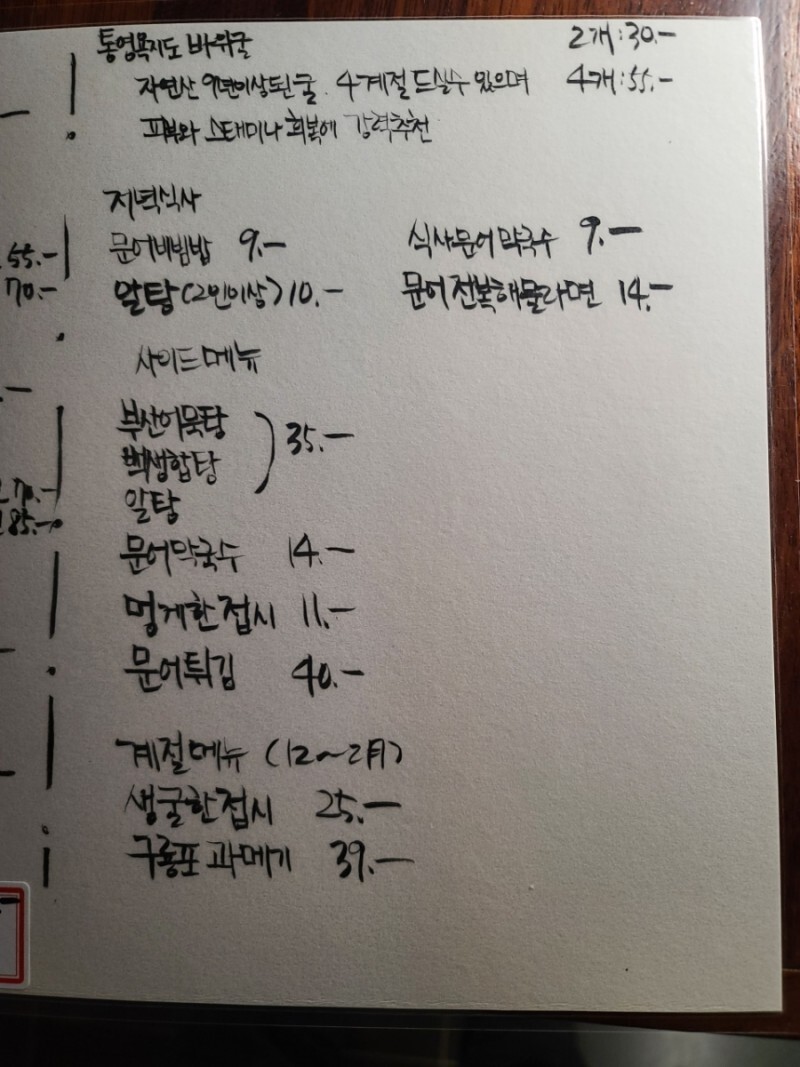 통영욕지도 바위굴 2개:30.-
자연산 9년이상된굴. 4계절 드실수 있으며 4개:55.-
피부와 스태미나 회복에 강력추천
저녁식사
문어비빔밥 9.- 식사문어막국수 9.-
알탕(2인이상)10.- 문어전복해물라면 14.-
55.-
70.-
사이드메뉴
부산어묵탕
백생합탕 35.-
알탕
70.-
85.-
문어막국수 14.-
멍게한접시 11.-
문어튀김 40.-
계절메뉴 (12~2月)
생굴한접시 25.-
구룡포 과메기 39.-